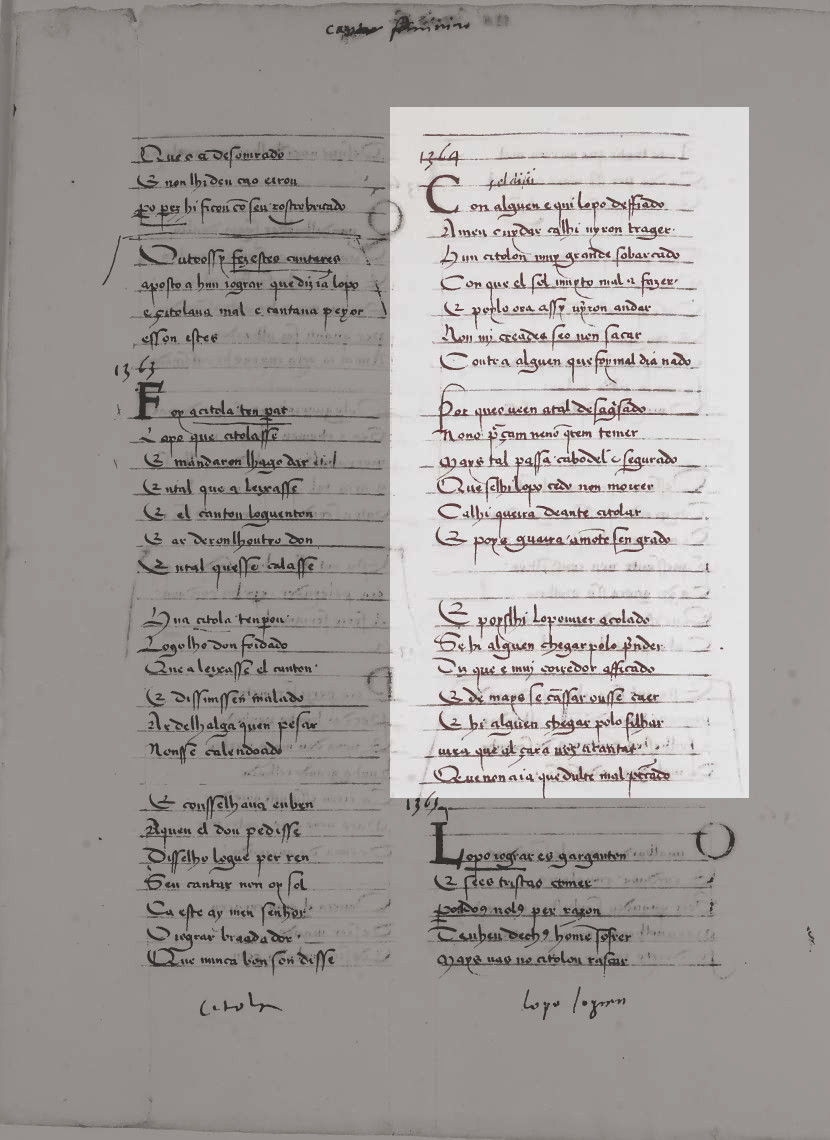 Que o a desonrrado
E non lhi deu cao errou
po pez hi ficou cō seu rostro britado
Outrossy fez estes cantares
aposto a hun iograr que dizia lopo
e çitolaua mal e cantaua peyor
e sson estes
1363
Foy acitola ten par
Lopo que citolasse
E mandaron lhago dar
E ntal que a leyxasse
E el canton loguenton
E ar deronlhoutro don
E ntal quesse calasse
Hũa citola tenpou
Logolho don foi dado
Que a leixasse el canton
E dissimssen malado
Ar delhalga quen pesar
Nonsse calendoado
E consselhaua eu ben
Aquen el don pedisse
Disselho logue per ren
Seu cantar non oysol
Ca este ay meu senhor
O iograr braadador
Que nunca bon son disse
citola
1364
Con alguen e qui lopo desfiado
A meu cuydar ca lhi uyron trager
Hun citolon muy grande sobarcado
Con que el sol muyto mal a fazer
E poylo ora assy uyron andar
Non mj creades seo non sacar
Contra alguen que foy mal dia nado
Por queo ueen atal desaguisado
Nono preçam neno querem temer
Mays tal passa cabodel e segurado
Que selhi lopo cedo non morrer
Ca lhi queira deante citolar
E poys guarra a morte sen grado
E poyslhi lopo ouuer acolado
Se hi alguen chegar polo prender
Diz que e mui corredor afficado
E de mays se cansar ousse caer
E hi alguen chegar polo filhar
Que non aia que dulte mal pecado
1365
Lopo iograr es garganton
E sees tristao comer
Pero dous nelos per razon
Tenhen dechus home soffrer
Mays uas no citolon rascar
lopo jograr